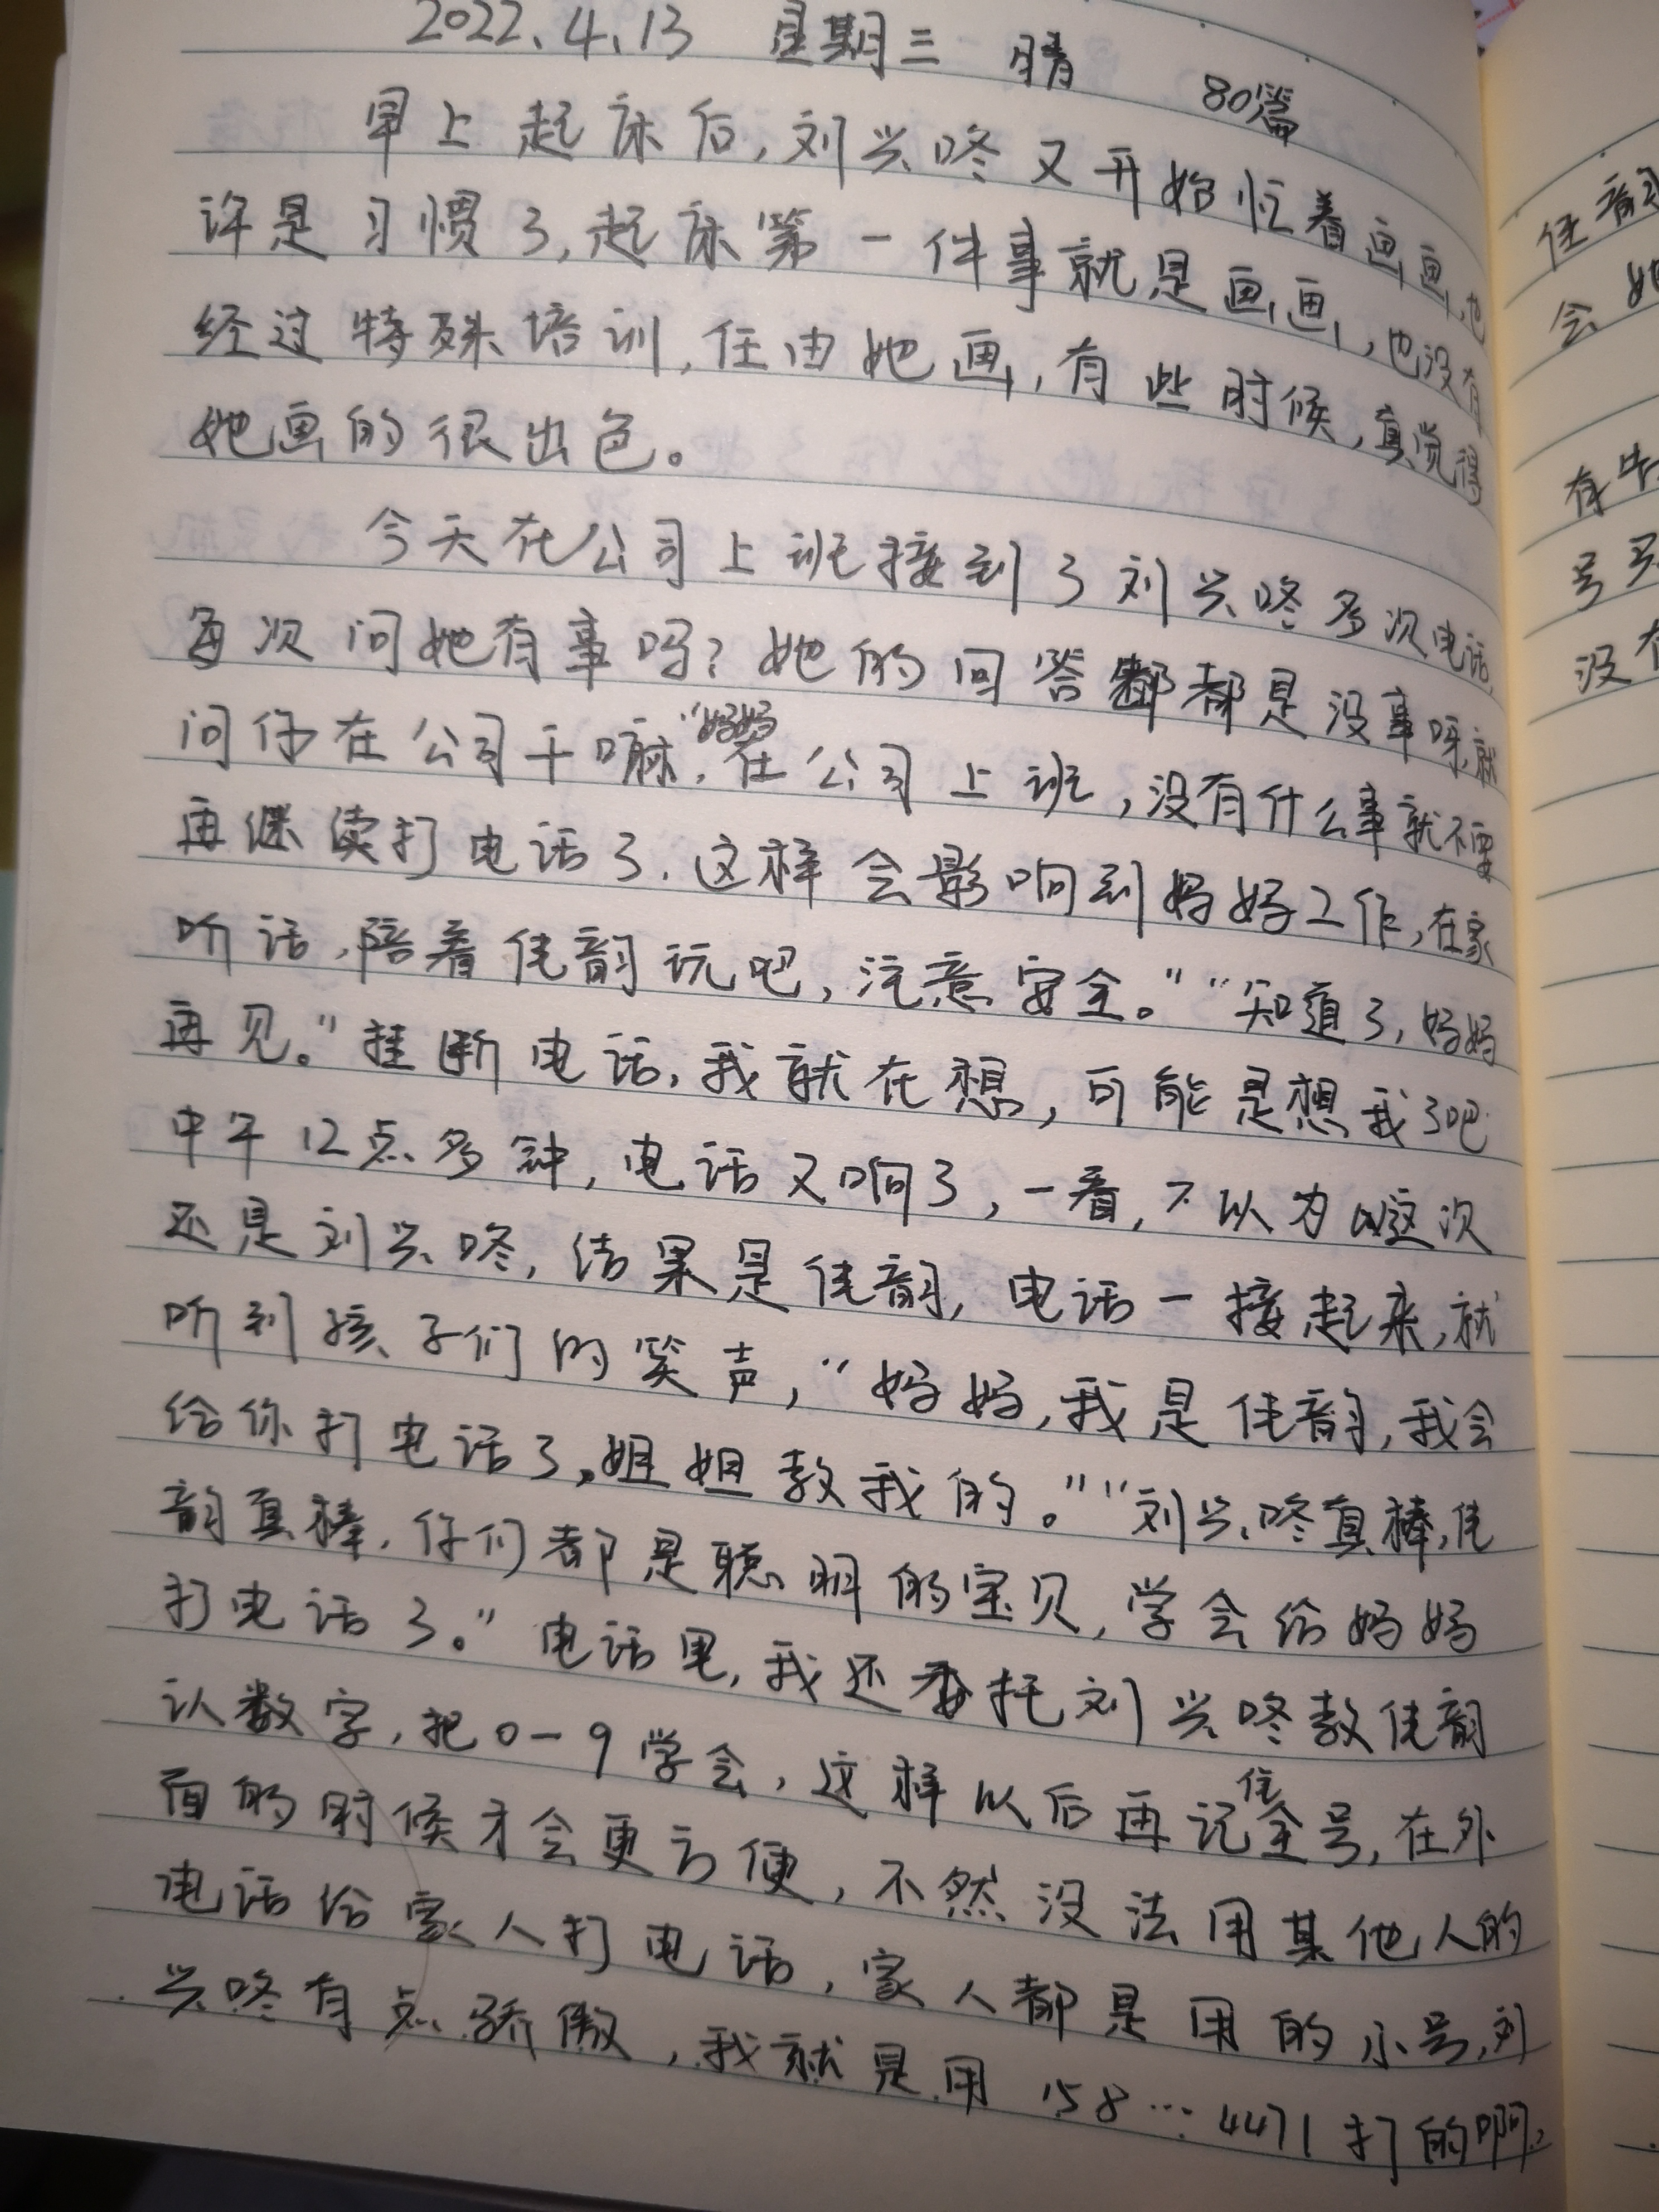 2022.4.13 星期三 晴 80篇
早上起床后,刘兴咚又开始忙着画画,也
许是习惯了,起床第一件事就是画画,也没有
经过特殊培训,任由她画,有些时候,真觉得
她画的很出色。
今天在公司上班接到了刘兴咚多次电话,
每次问她有事吗?她的回答都是没事呀,就
问你在公司干嘛,“妈妈在公司上班,没有什么事就不要
再继续打电话了.这样会影响到妈妈工作,在家
听话,陪着佳韵玩吧,注意安全。”“知道了,妈妈
再见。”挂断电话,我就在想,可能是想我了吧.
中午12点多钟,电话又响了,一看,不以为这次
还是刘兴咚,结果是佳韵,电话一接起来,就
听到孩子们的笑声,“妈妈,我是佳韵,我会
给你打电话了,姐姐教我的。”“刘兴咚真棒,佳
韵真棒,你们都是聪明的宝贝,学会给妈妈
打电话了。”电话里,我还委托刘兴咚教佳韵
认数字,把0-9学会,这样以后再记住全号,在外
面的时候才会更方便,不然没法用其他人的
电话给家人打电话,家人都是用的小号,刘
兴咚有点骄傲,我就是用158…4471打的啊,
佳韵
会她
有
号
没有